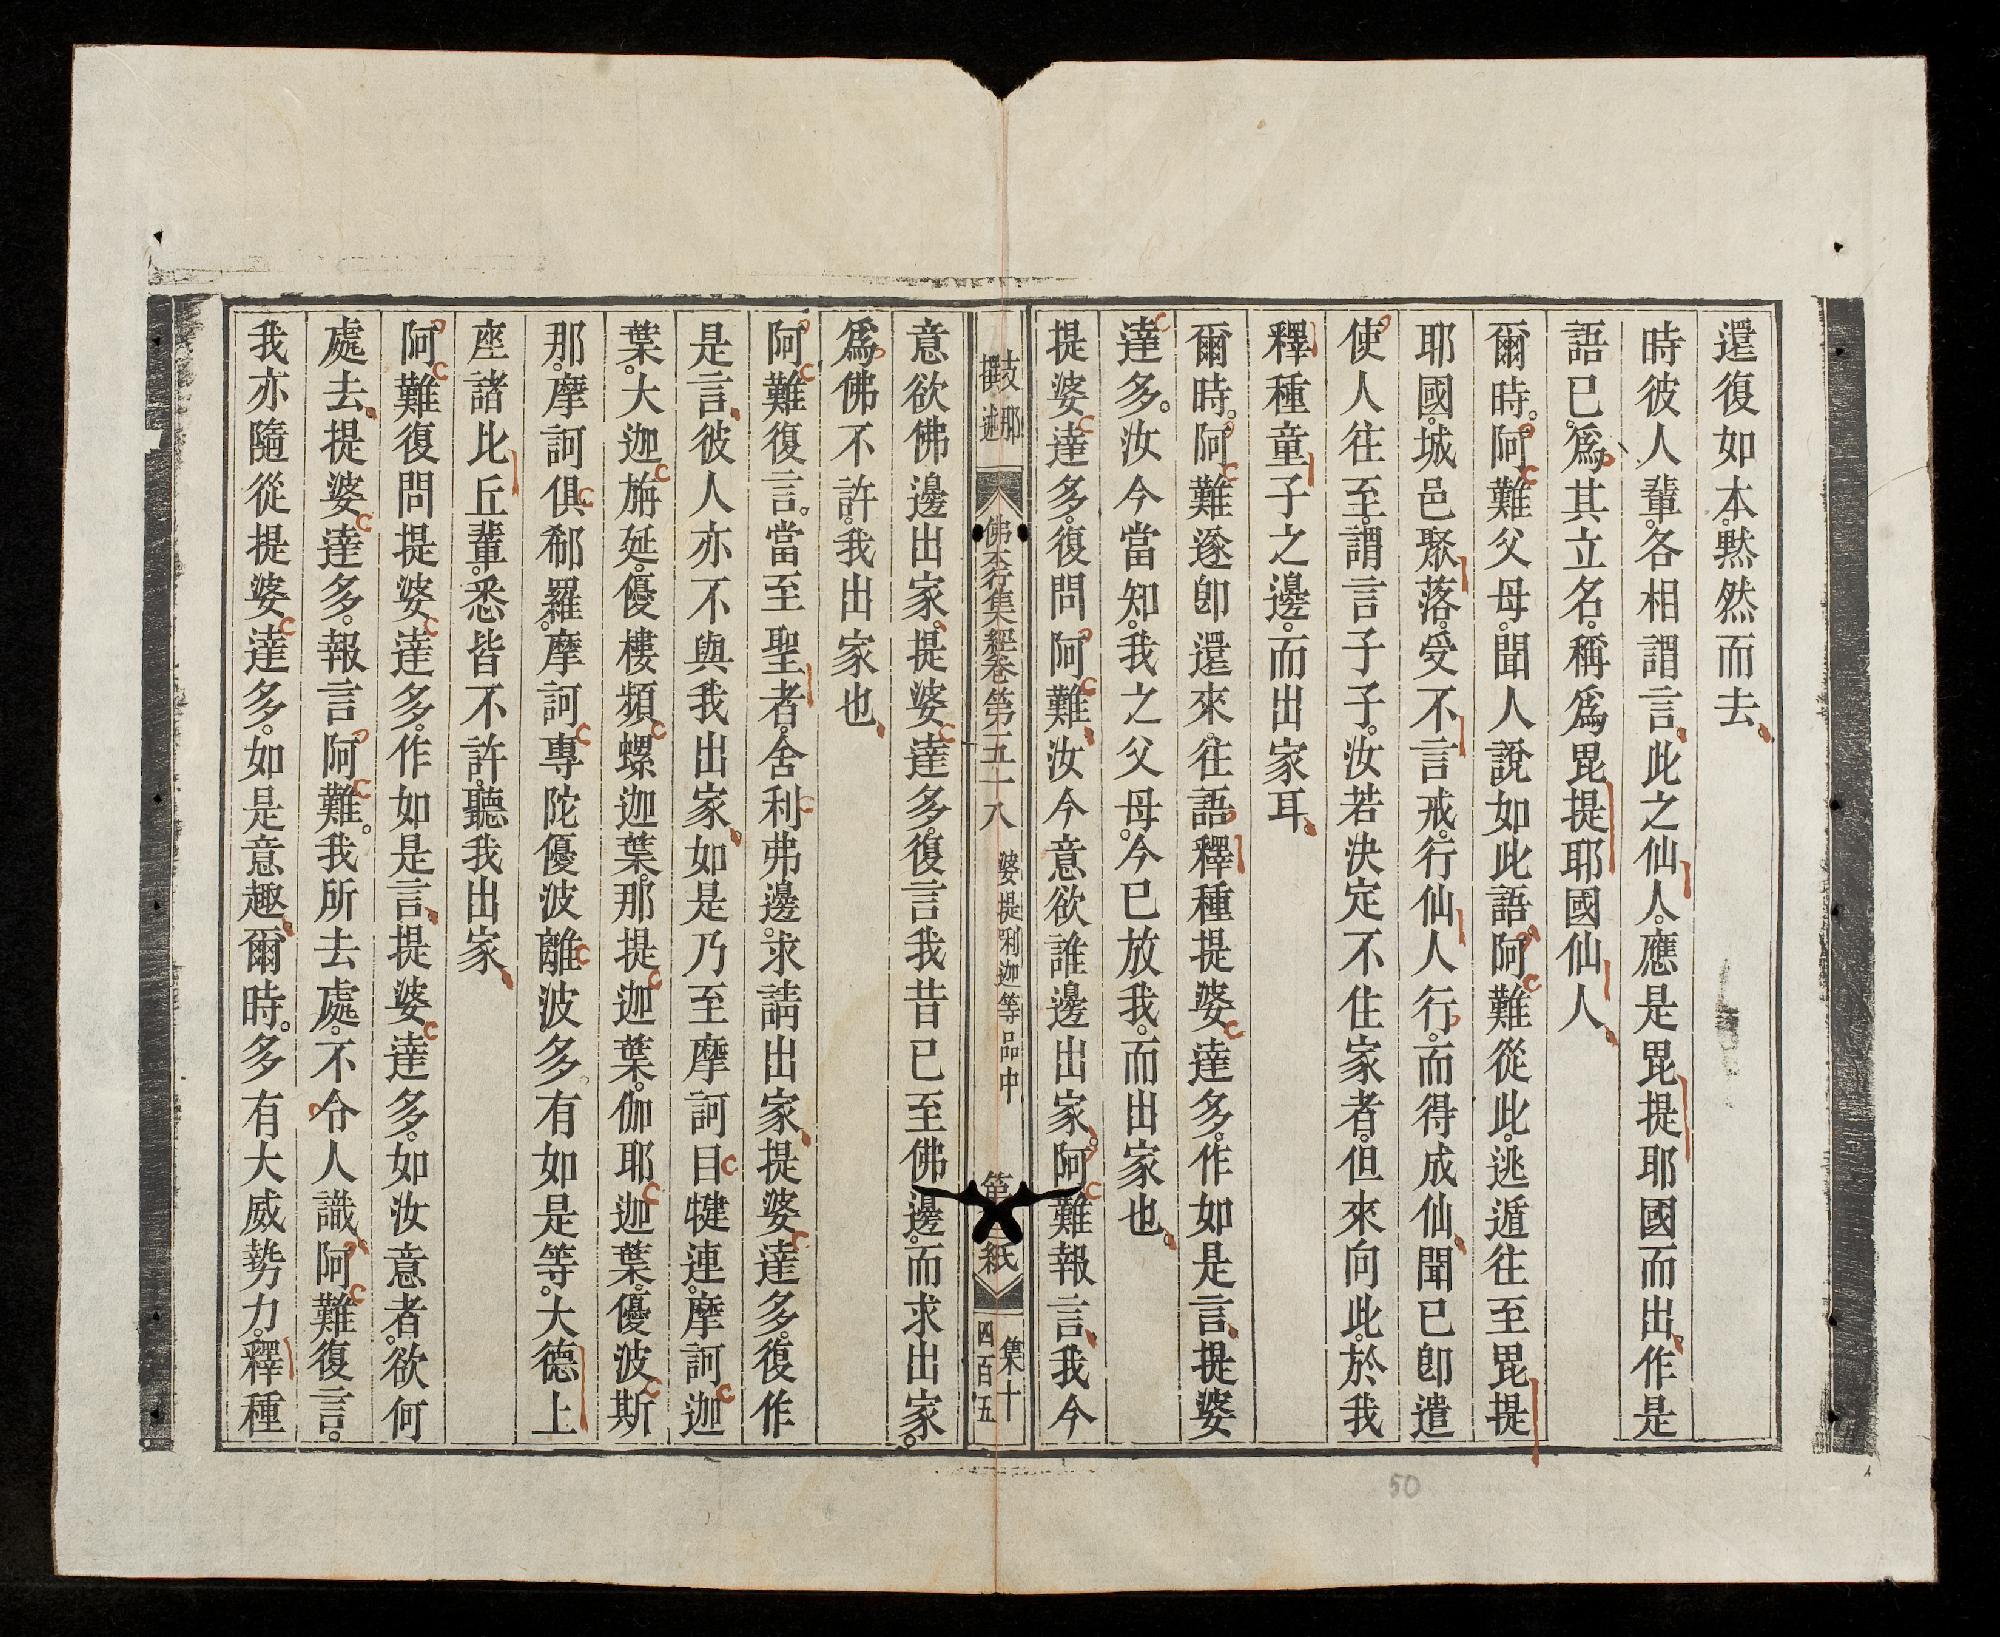 還復如本默然而去
時彼人輩各相謂言此之仙人應是毘提耶國而出作是
語已爲其立名稱爲毘提耶國仙人
爾時阿難父母聞人說如此語阿難從此逃遁往至毘提
耶國城邑聚落受不言戒行仙人行而得成仙聞已卽遣
使人往至謂言子子汝若決定不住家者但來向此於我
釋種童子之邊而出家耳
爾時阿難遂卽還來往語釋種提婆達多作如是言提婆
達多汝今當知我之父母今已放我而出家也
提婆達多復問阿難汝今意欲誰邊出家阿難報言我今
佛本行集經卷第五十八 婆提唎迦等品中 第 紙 集十 四百五
意欲佛邊出家提婆達多復言我昔已至佛邊而求出家
爲佛不許我出家也
阿難復言當至聖者舍利弗邊求請出家提婆達多復作
是言彼人亦不與我出家如是乃至摩訶目犍連摩訶迦
葉大迦旃延優樓頻螺迦葉那提迦葉伽耶迦葉優波斯
那摩訶俱郗羅摩訶專陀優波離波多有如是等大德上
座諸比丘輩悉皆不許聽我出家
阿難復問提婆達多作如是言提婆達多如汝意者欲何
處去提婆達多報言阿難我所去處不令人識阿難復言
我亦隨從提婆達多如是意趣爾時多有大威勢力釋種
50